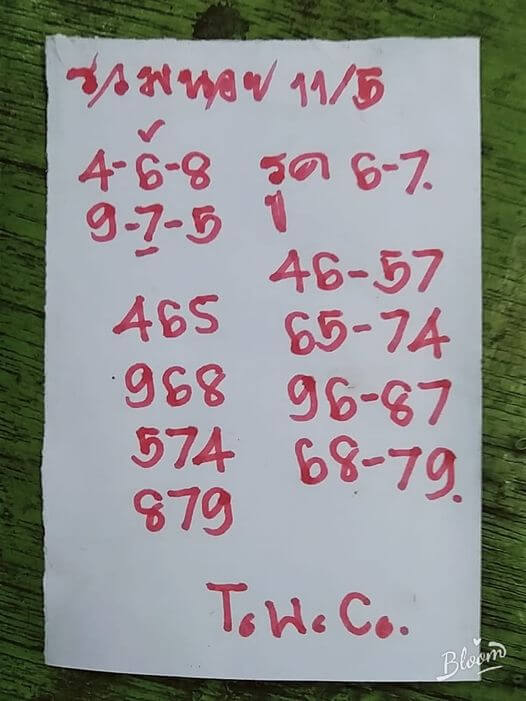 ฮานอย 11/5
4-6-8 รูด 6-7.
9-7-5
46-57
465 65-74
968 96-87
574 68-79.
879
T. พ. C..
Bloom